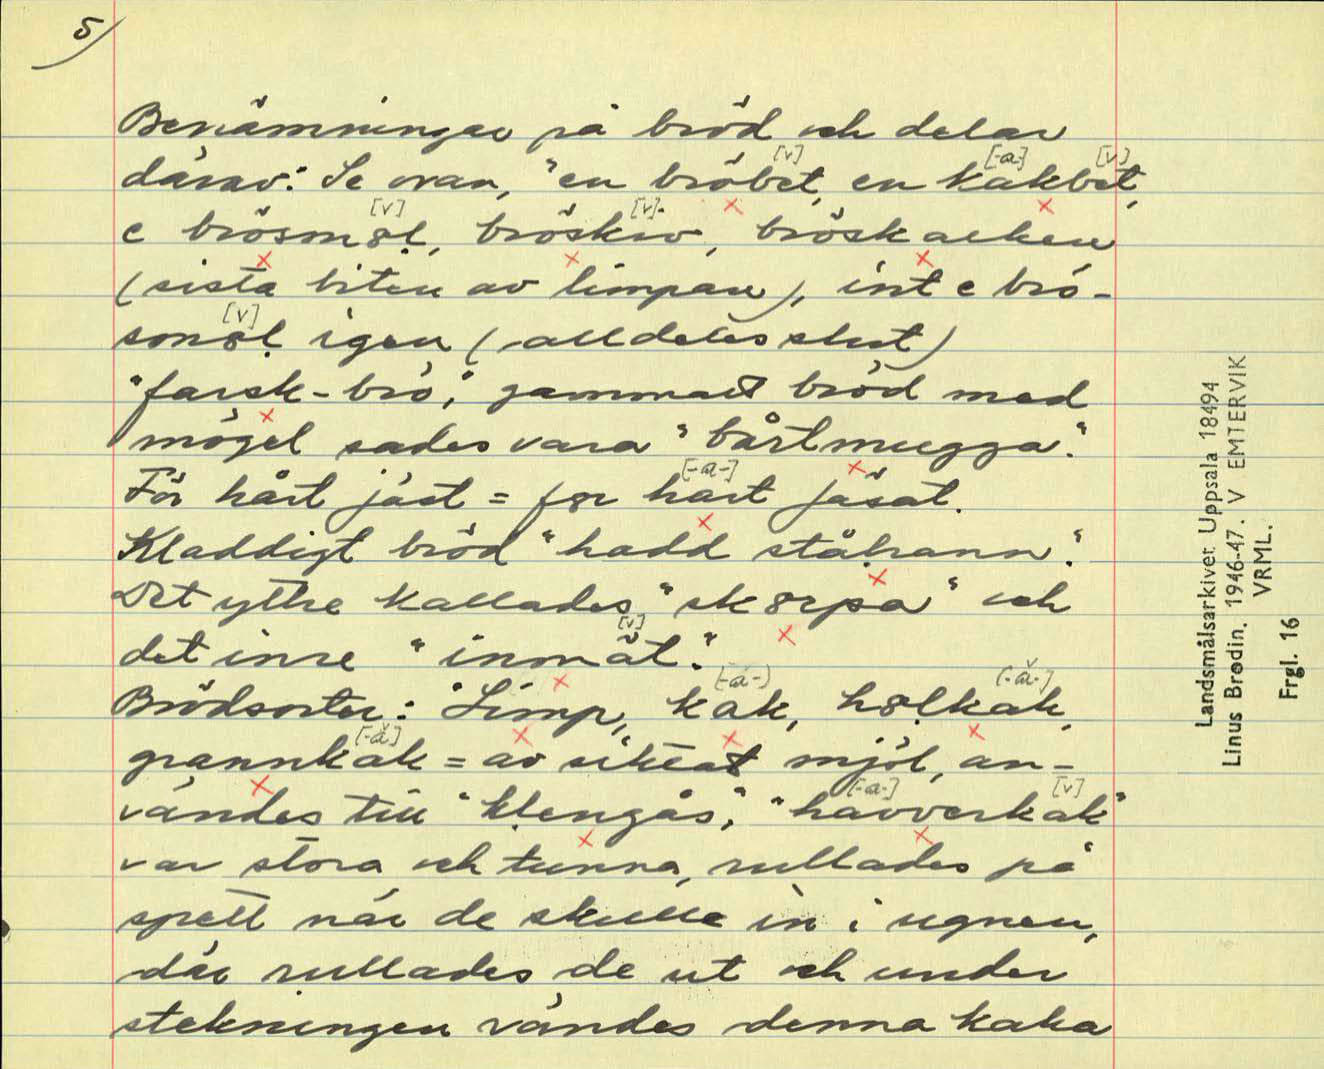 5
Benämningar på bröd och delar
därav: Se ovan, "en bröbet, en kakbet,
[v] [-a-] [v]
e brösmȣl, bröskiv, bröskalken
[v] [v]
(sista biten av limpan), int e brö-
smȣl igen (alldeles slut)
[v]
"farsk-brö", gammalt bröd med
mögel sades vara "bårtmugga".
För hårt jäst = fȣr hart jäsat.
[-a-]
Kladdigt bröd "hadd ståhann".
Det yttre kallades "skȣrpa" och
det inre "inmät".
[v]
Brödsorter: "Limp, kak, hȣlkak,
[-a-] [-ǎ-]
grannkak = av siktat mjöl, an-
[-ǎ]
vändes till "klengås", "havverkak"
[-a-] [v]
var stora och tunna, rullades på
spett när de skulle in i ugnen,
där rullades de ut och under
stekningen vändes denna kaka
Landsmålsarkivet Uppsala 18494
Linus Brodin. 1946-47. V EMTERVIK
VRML.
Frgl. 16